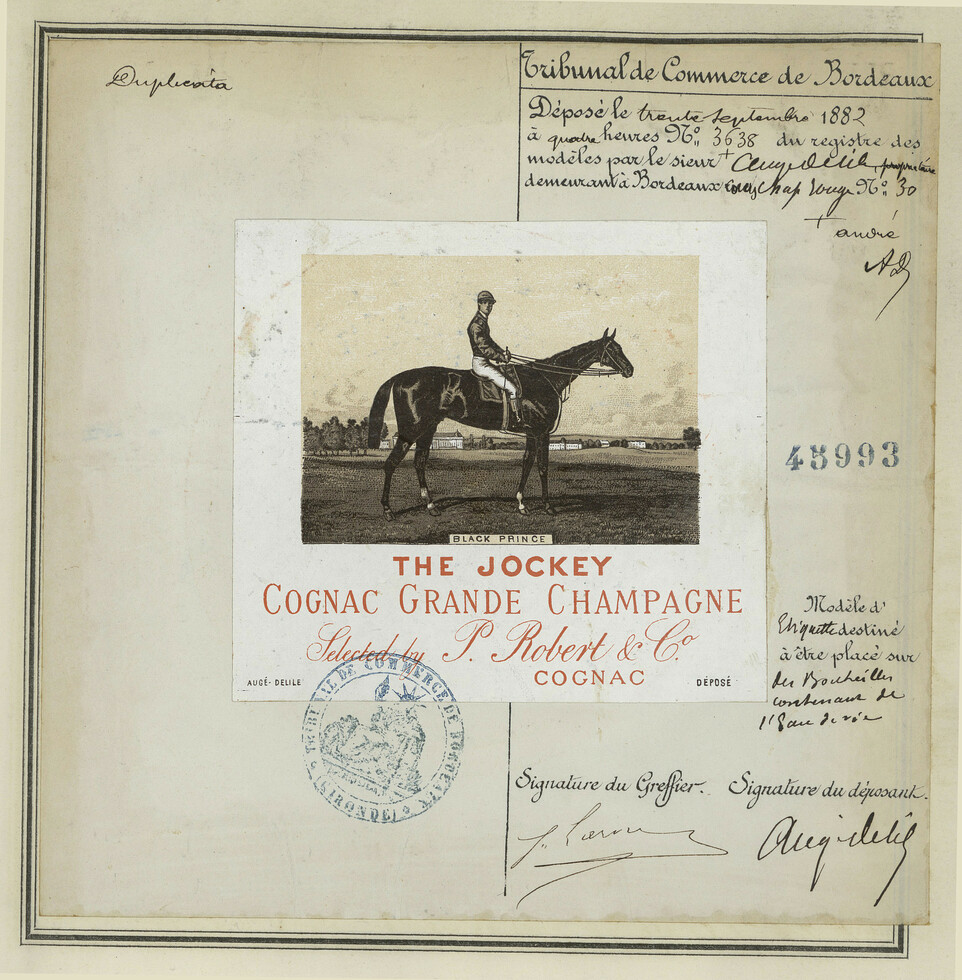 Duplicata
Tribunal de Commerce de Bordeaux
Déposé le trente Septembre 1882
à quatre heures Nº. 3638 du registre des
modèles par le sieur + Augé Delile, propriétaire
demeurant à Bordeaux Chap rouge Nº. 30
+ andré
AD
BLACK PRINCE
THE JOCKEY
COGNAC GRANDE CHAMPAGNE
Selected by P. Robert & Cº
COGNAC
AUGÉ-DELILE
DÉPOSÉ
45993
Modèle d'
Etiquette destiné
à être placé sur
des Bouteilles
contenant de
l'Eau de vie
TRIBUNAL DE COMMERCE DE BORDEAUX
(GIRONDE)
Signature du Greffier.
Signature du déposant.
Augé Delile